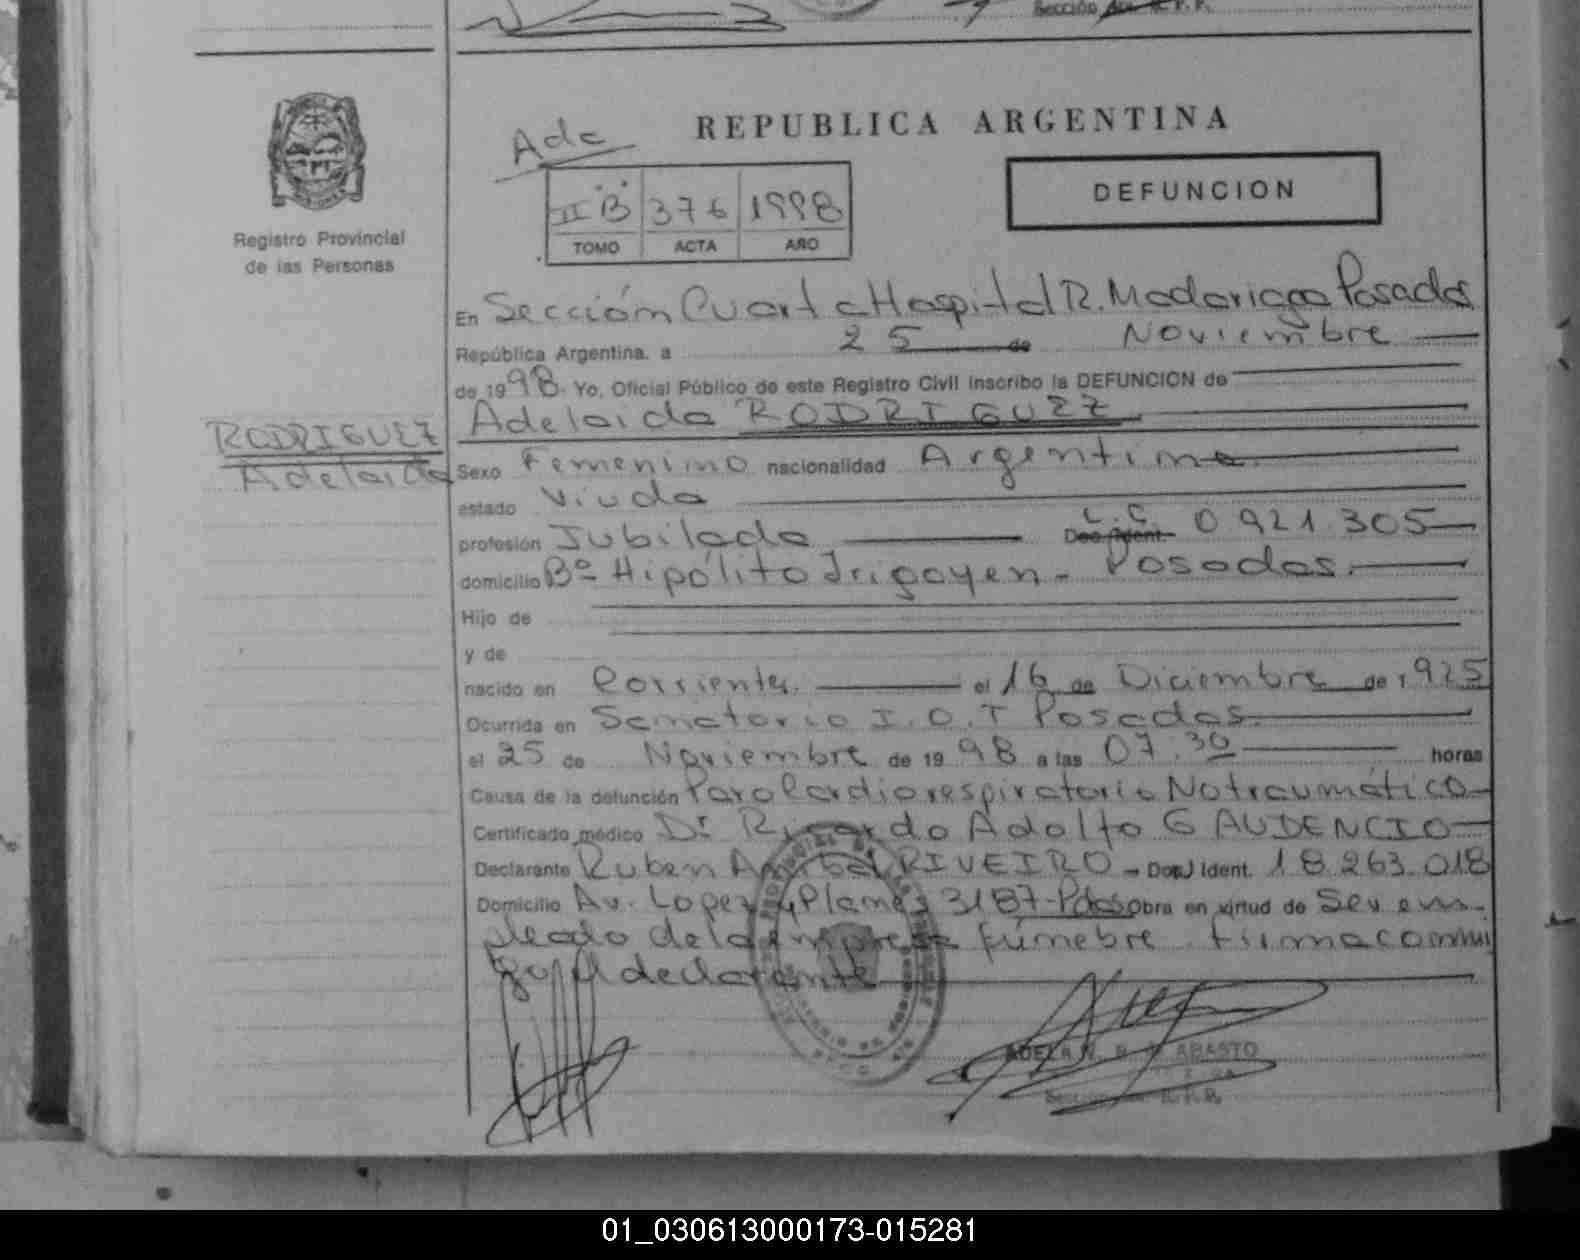 Sección
REPUBLICA ARGENTINA
DEFUNCION
II "B" 376 1998
TOMO ACTA AÑO
Registro Provincial
de las Personas
En Sección Cuarta Hospital R. Madariaga Posadas
República Argentina, a 25 de Noviembre
de 1998 Yo, Oficial Público de este Registro Civil inscribo la DEFUNCION de
Adelaida RODRIGUEZ
RODRIGUEZ
Adelaida
Sexo Femenino nacionalidad Argentina
estado Viuda
profesión Jubilada L.C. Doc. Ident. 0 921.305
domicilio Bº Hipólito Irigoyen - Posadas.
Hijo de
y de
nacido en Corrientes. el 16 de Diciembre de 1925
Ocurrida en Sanatorio I.O.T Posadas
el 25 de Noviembre de 1998 a las 07.30 horas
Causa de la defunción Paro Cardiorespiratorio No traumático
Certificado médico Dr Ricardo Adolfo GAUDENCIO
Declarante Ruben Anibal RIVEIRO - Doc. Ident. 18.263.018
Domicilio Av. Lopez y Planes 3187-Pdas obra en virtud de Ser em-
pleado de la empresa fúnebre. firma conmi
go el declarante
ADELA ABASTO
01_030613000173-015281